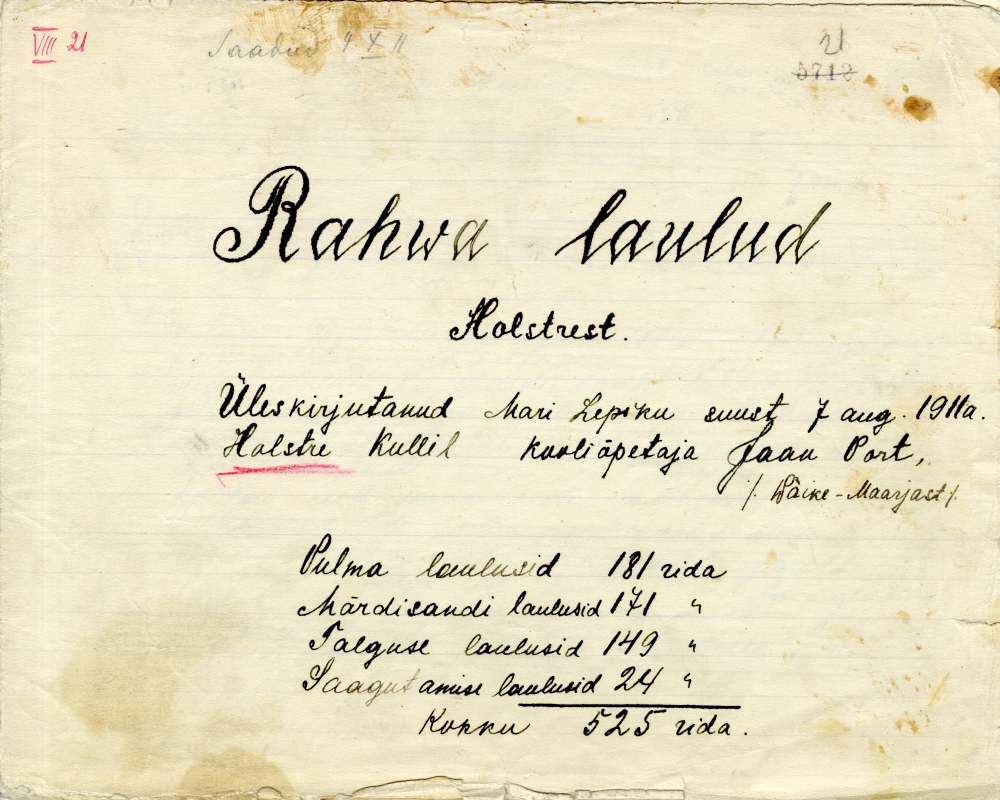 VIII 21
Saadud 9 X 11
21
5712
Rahwa laulud
Holstrest.
Üleskirjutanud Mari Lepiku suust 7 aug. 1911a.
Holstre Kullil kooliõpetaja Jaan Port,
/. Wäike-Maarjast /.
Pulma laulusid 181 rida
Märdisandi laulusid 171 "
Talguse laulusid 149 "
Saagutamise laulusid 24 "
Kokku 525 rida.